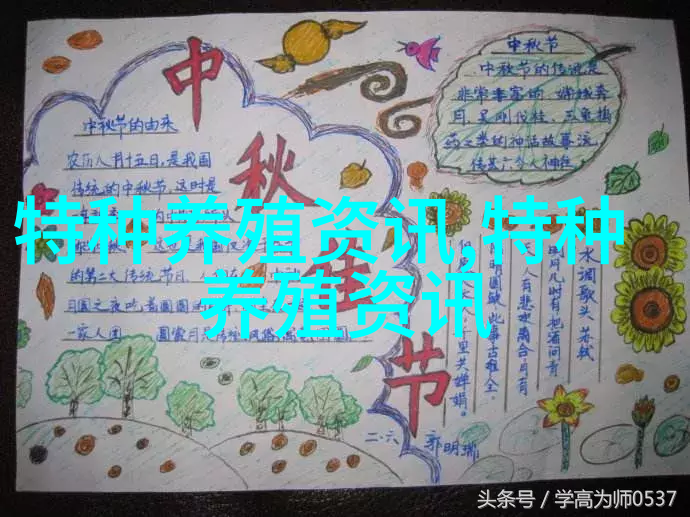 中秋佳节
中秋节的由来
农历八月十五日,是我国
传统的中秋节,这时是
的第二大传统节日
月圆之夜吃着圆圆
一家人团
圆
中秋节
中秋节的传说是
非常丰富的,嫦娥奔
月,吴刚伐桂,玉兔捣
药之类的神话故事流
传甚广
水调歌头 苏轼
明月几时有把酒问青
人有悲欢离合月有
阴晴圆缺,此事古难全。
但愿人长久千里共婵娟。
二.六 郭明瑞
特种养殖资讯,特种
养殖资讯
头条号/学高为师0537